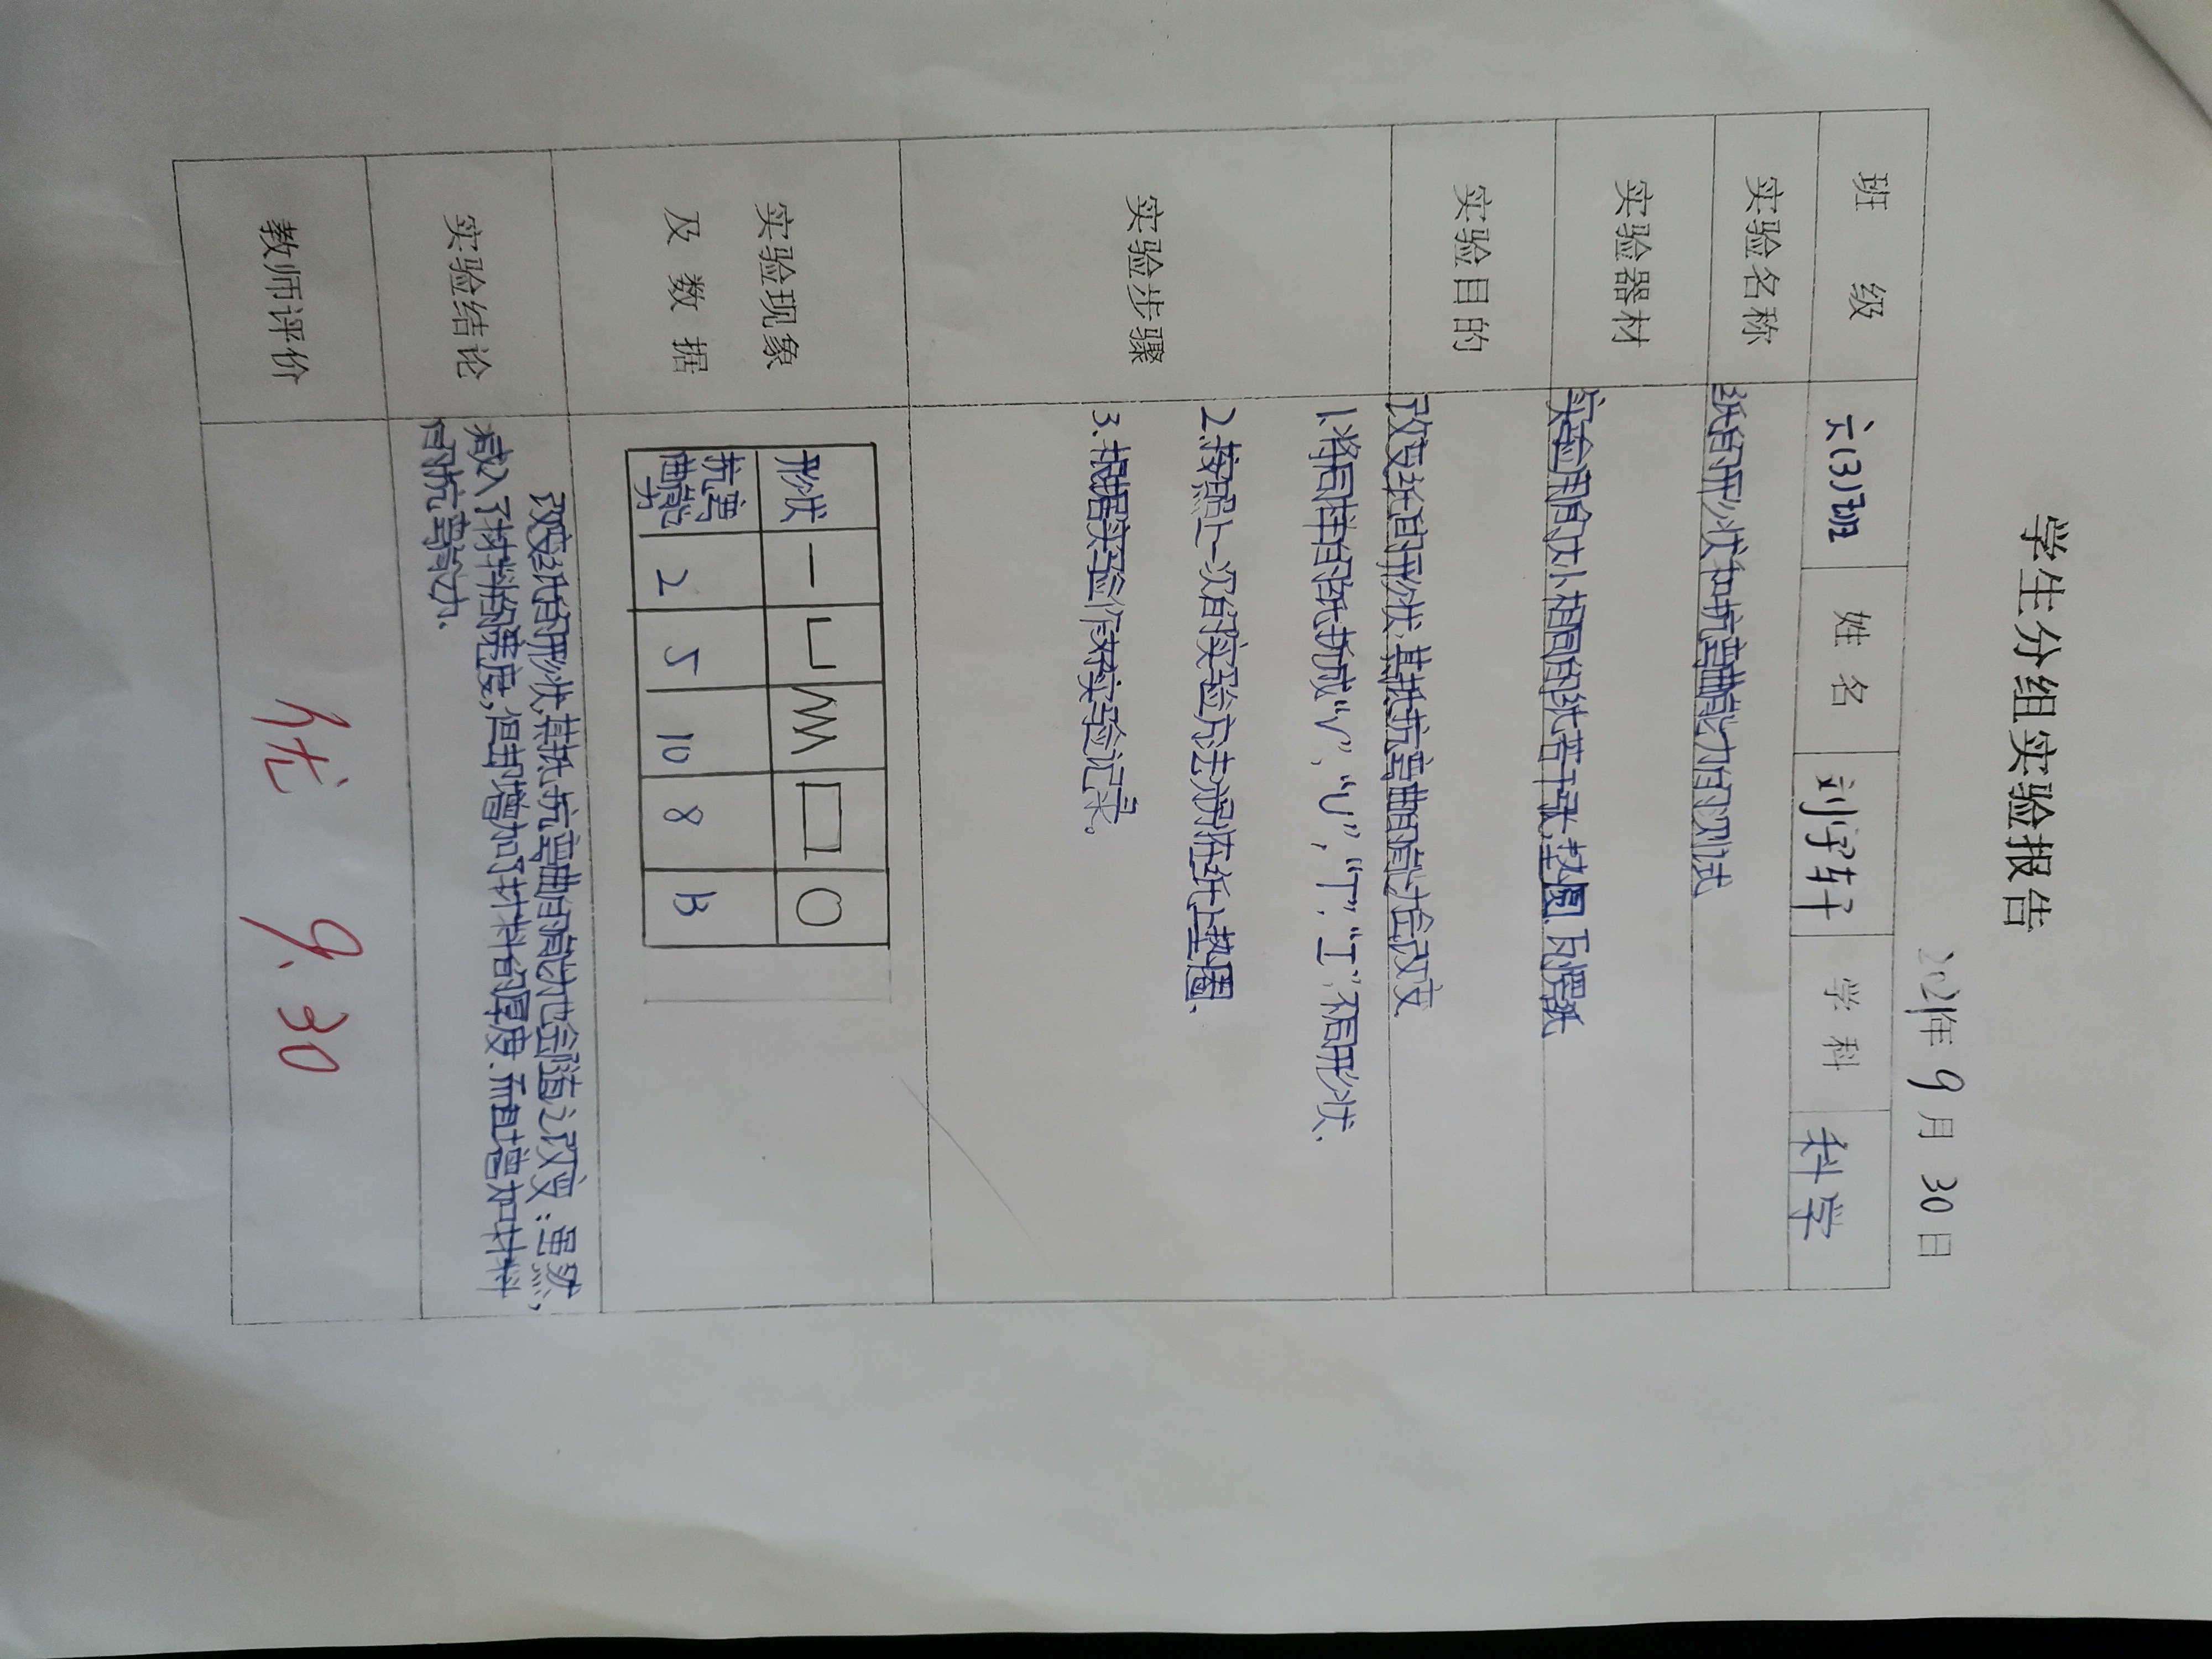 学生分组实验报告
2021年 9 月 30 日
班 级 六(3)班 姓 名 刘宇轩 学 科 科学
实验名称 纸的形状和抗弯曲能力的测试
实验器材 实验用的大小相同的纸若干张、垫圈、瓦楞纸
实验目的 改变纸的形状,其抵抗弯曲的能力会改变
实验步骤
1.将同样的纸折成“V”,“U”,“T”,“工”,不同形状.
2.按照上一次的实验方法,测在纸上垫圈.
3.根据实验,做好实验记录。
实验现象
及 数 据
形状 一 凵 VVV 口 〇
抗弯曲能力 2 5 10 8 13
实验结论
改变纸的形状,其抵抗弯曲的能力也会随之改变:虽然,
减入了材料的宽度,但却增加了材料的厚度.而且增加材料
的抗弯能力.
教师评价 优 9.30